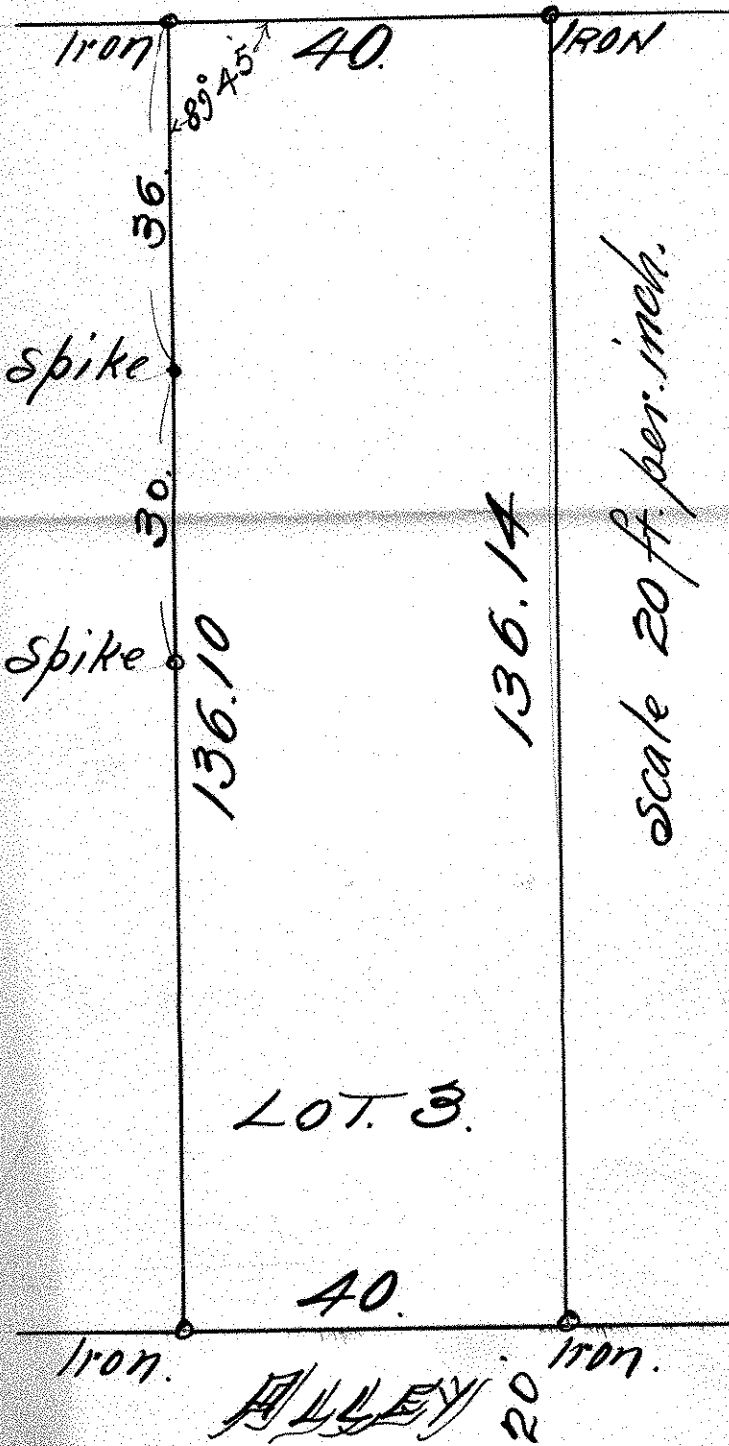 Iron
40.
IRON
89° 45'
36.
Spike
30.
Spike
136.10
136.14
Scale 20 ft. per. inch.
LOT. 3.
40.
Iron.
Iron.
ALLEY
20'